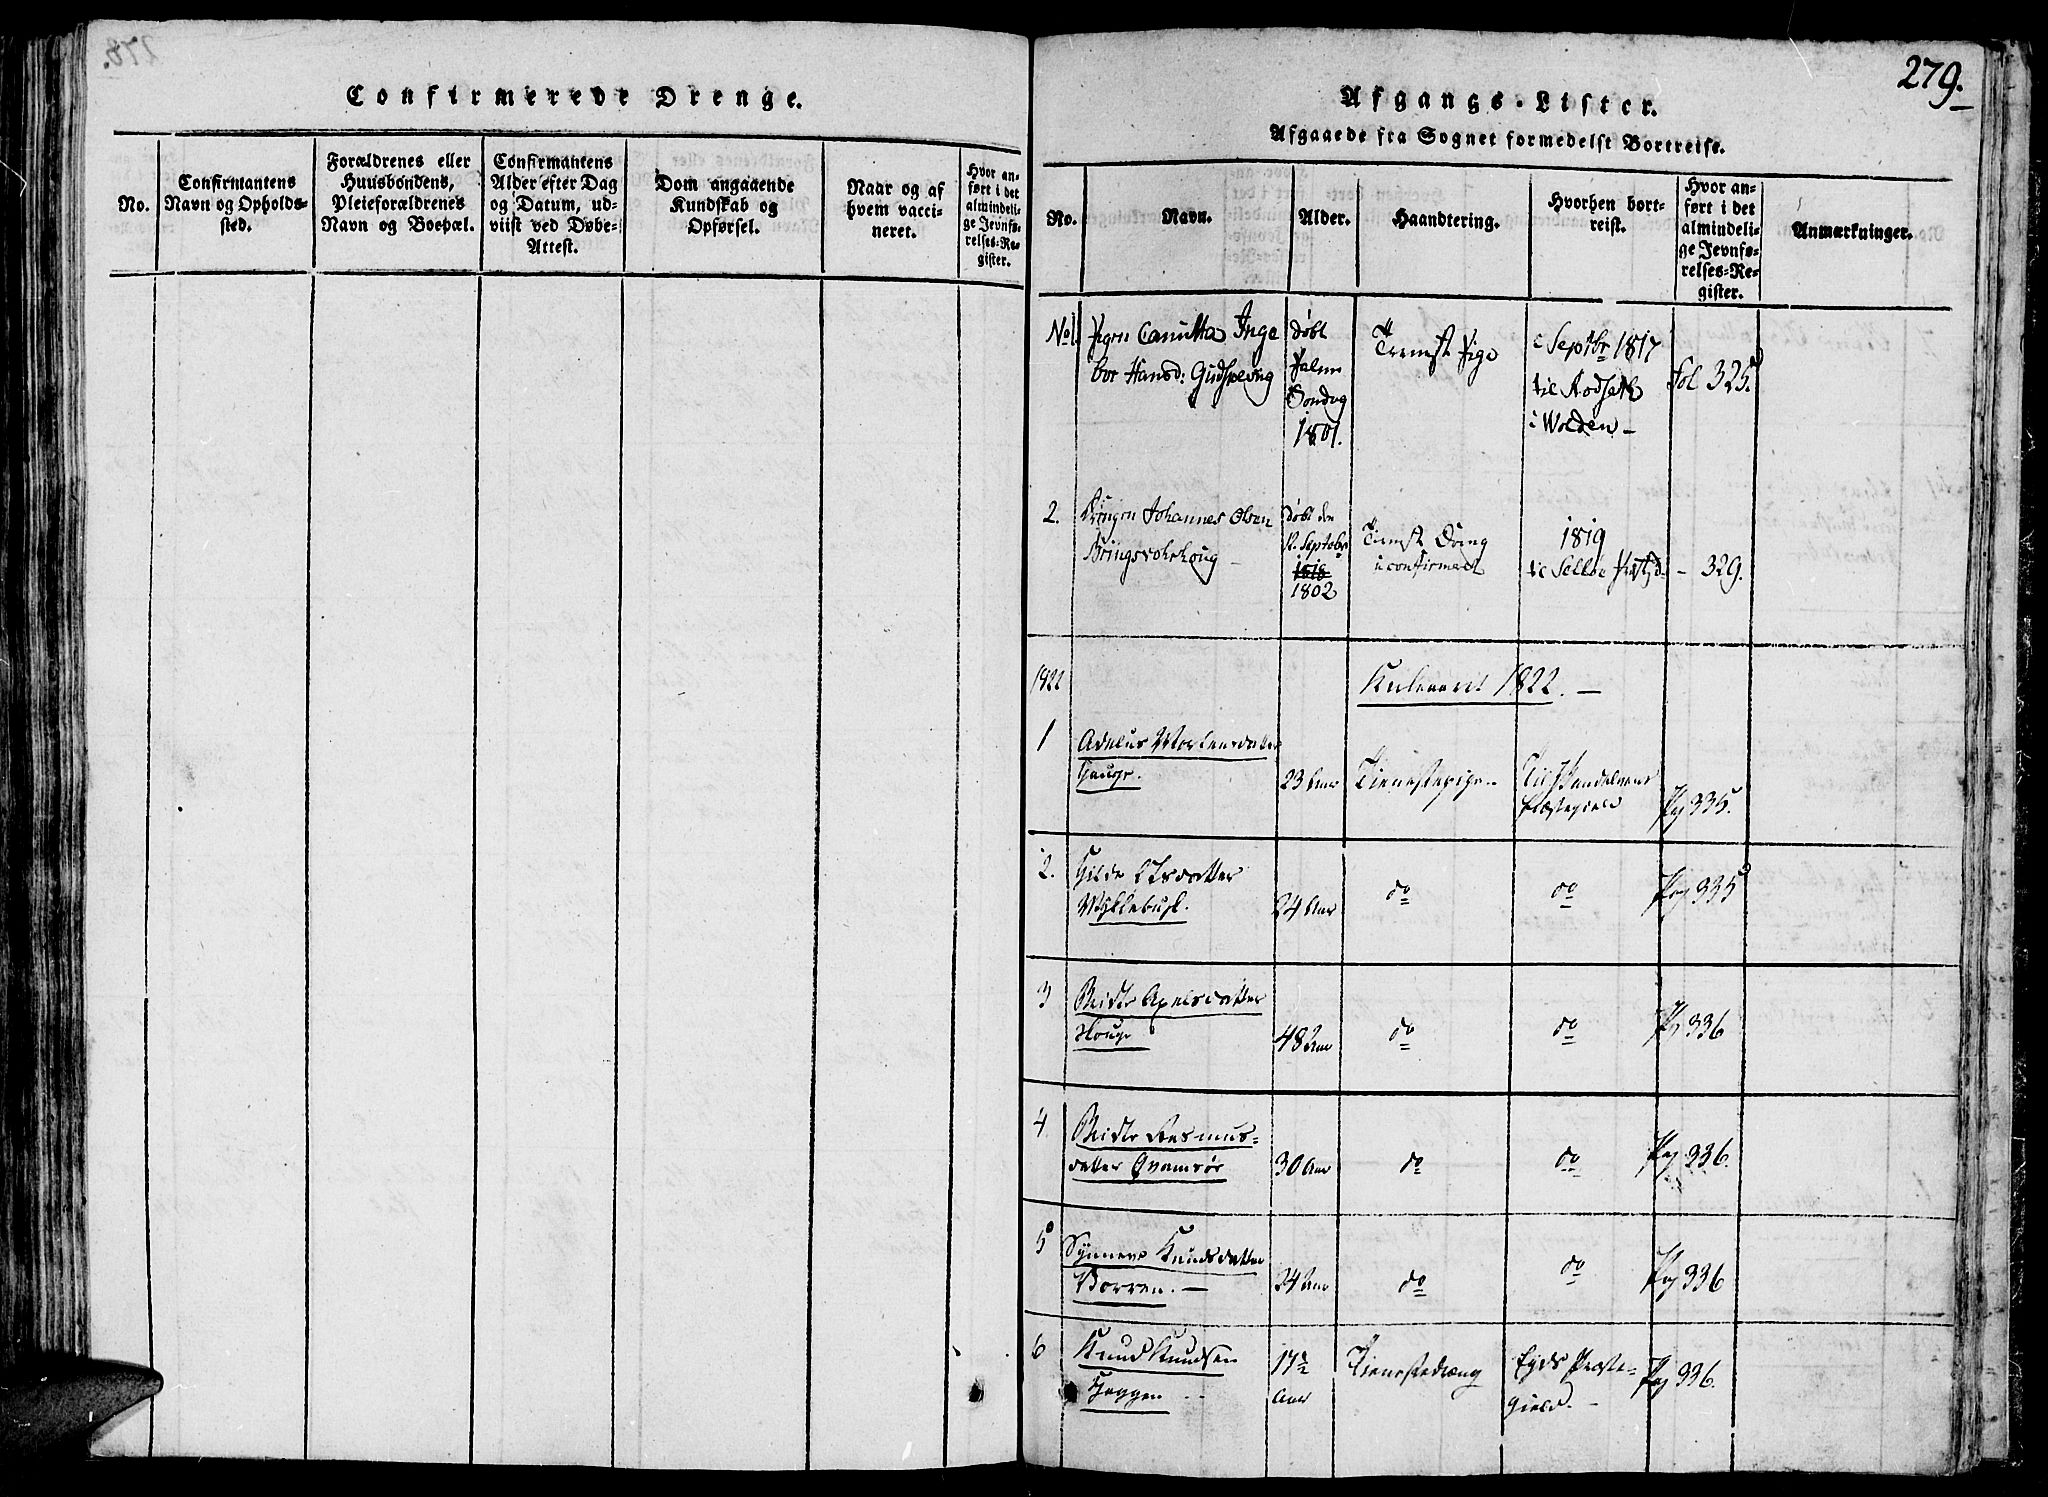 Confirmerede Drenge.
No.
Confirmantens
Navn og Opholds-
sted.
Forældrenes eller
Huusbondens,
Pleieforældrenes
Navn og Boepæl.
Confirmantens
Alder efter Dag
og Datum, ud-
viist ved Døbe-
Attest.
Dom angaaende
Kundskab og
Opførsel.
Naar og af
hvem vacci-
neret.
Hvor an-
ført i det
almindeli-
ge Jevnfø-
relses-Re-
gister.
279.
Afgangs-Lister.
Afgaaede fra Sognet formedelst Bortreise.
No.
Navn.
Alder.
Haandtering.
Hvorhen bort-
reist.
Hvor an-
ført i det
almindeli-
ge Jevnfø-
relses-Re-
gister.
Anmærkninger.
No 1. Pigen Canutta Inge
bor Hansd:
Døbt
Palme
Søndag
1801.
Tienst Pige
Septbr 1817
til Rødseth
i Wolden –
Fol 325.
2. Drengen Johannes Olsen
Døbt den
12 Septebr
1818
1802
Tienst Dreng
confirmert
1819
til Selløe
– 329.
1822
1822. –
1
Mortensdatter
Hauge.
23 Aar
Tienestepige
Til
Præstegield
Pag 335.
2.
Gilde
Myklebust.
24 Aar
do
do
Pag 335
3
Axelsdatter
Houge
48 Aar
do
do
Pag 336
4
Rasmus-
datter Qvamsør
30 Aar
do
do
Pag 336.
5
Synneve Knudsdatter
Vorren. –
24 Aar
do
do
Pag 336
6
Knud Knudsen
17½
Aar
Tienestedreng
Eyds Præste-
gield. –
Pag 336.